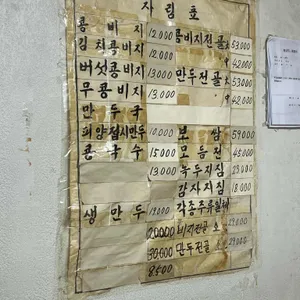 차림표
콩비지 12,000 콩비지전골 大 53,000
김치콩비지 12,000 中 42,000
버섯콩비지 13,000 만두전골 大 53,000
무콩비지 13,000 中 42,000
만두국
피양접시만두 10,000 보쌈 59,000
콩국수 15,000 모듬전 45,000
13,000 녹두지짐 23,000
감자지짐 18,000
생만두 각종주류일체
20,000 비지전골 小
30,000 만두전골 小
8500